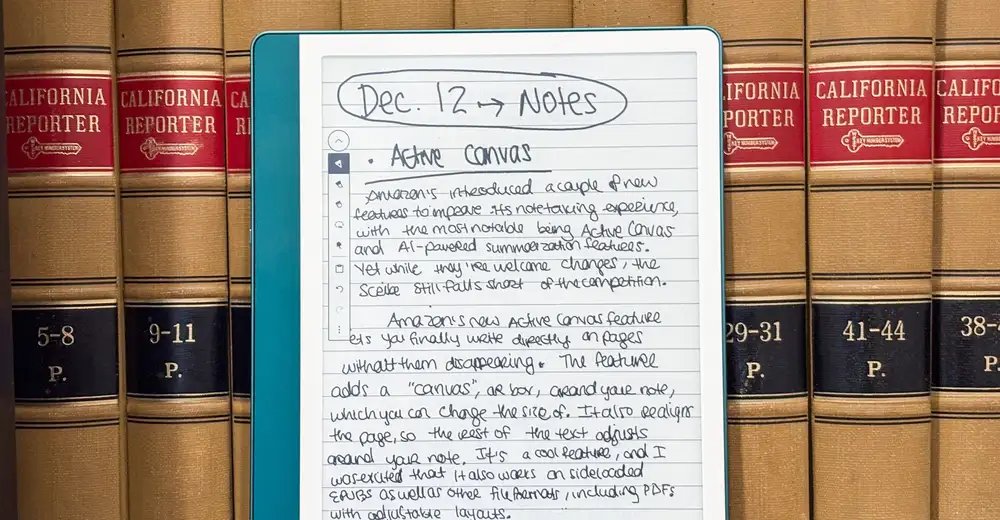 CALIFORNIA
REPORTER
KEY NUMBER SYSTEM
5-8
P.
CALIFORNIA
REPORTER
KEY NUMBER SYSTEM
9-11
P.
CA
R
Dec. 12 → Notes
• Active Canvas
Amazon's introduced a couple of new
features to improve its notetaking experience,
with the most notable being Active Canvas
and AI-powered summarization features.
Yet while they're welcome changes, the
Scribe still falls short of the competition.
Amazon's new Active Canvas feature
lets you finally write directly on pages
without them disappearing. The feature
adds a "canvas", or box, around your note,
which you can change the size of. It also realigns
the page, so the rest of the text adjusts
around your note. It's a cool feature, and I
was excited that it also works on sideloaded
EPUBs as well as other file formats, including PDFs
with adjustable layouts.
IFORNIA
PORTER
KEY NUMBER SYSTEM
29-31
P.
CALIFORNIA
REPORTER
KEY NUMBER SYSTEM
41-44
P.
CALIFOR
REPOR
38-
P.